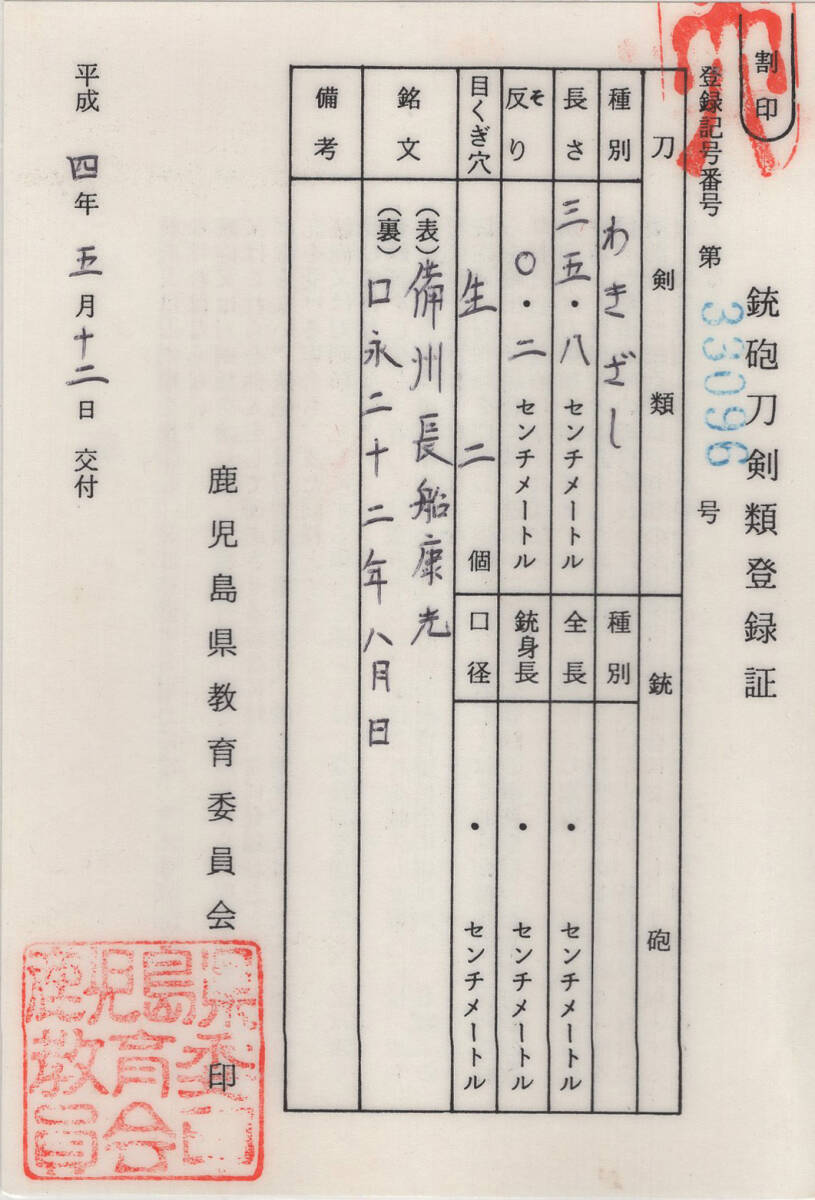 割印
銃砲刀剣類登録証
登録記号番号 第 33096 号
刀剣類
種別 わきざし
長さ 三五・八 センチメートル
反り そ 〇・二 センチメートル
目くぎ穴 生 二 個
銃砲
種別
全長 ・ センチメートル
銃身長 ・ センチメートル
口径 ・ センチメートル
銘文
(表) 備州長船康光
(裏) 口永二十二年八月日
備考
平成 四年 五月 十二日 交付
鹿児島県教育委員会 印
鹿児島県
教育委
員会印